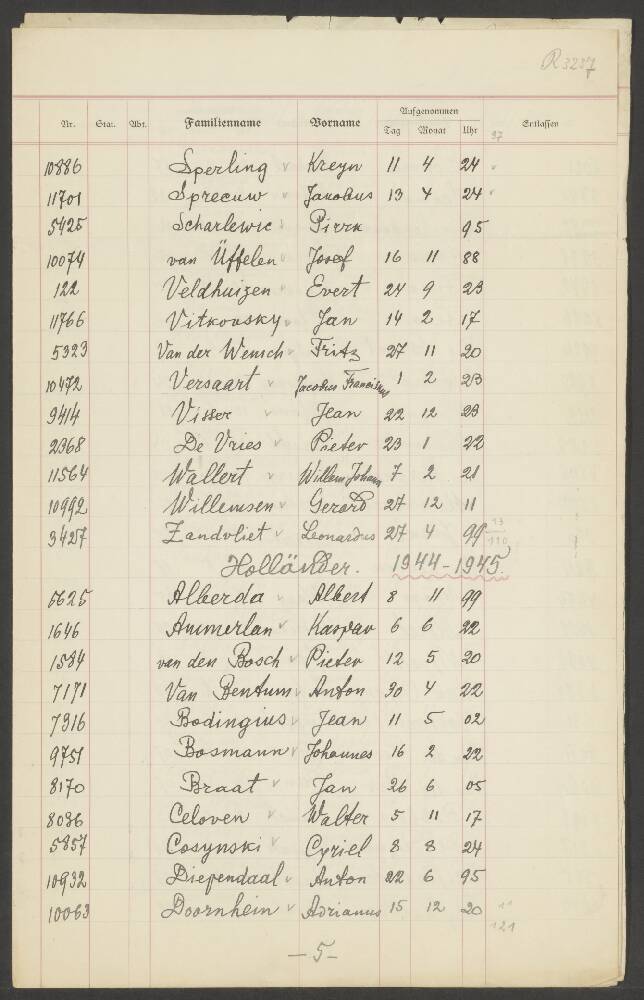 R 3237
Nr. Stat. Abt. Familienname Vorname Aufgenommen Entlassen
Tag Monat Uhr
97
10886 Sperling v Kreyn 11 4 24
11701 Spreeuw v Jacobus 13 4 24
5425 Scharlewic Pirrk 95
10074 van Üffelen v Josef 16 11 88
122 Veldhuizen v Evert 24 9 23
11766 Vitkovsky v Jan 14 2 17
5323 Van der Wensch v Fritz 27 11 20
10472 Versaart v Jacobus Franciskus 1 2 23
9414 Visser v Jean 22 12 23
2368 De Vries v Pieter 23 1 22
11564 Wallert v Willem Johann 7 2 21
10992 Willemsen v Gerard 27 12 11
3427 Zandvliet v Leonardus 27 4 99 13
110
Holländer. 1944-1945.
6625 Alberda v Albert 8 11 99
1646 Ammerlan v Kaspar 6 6 22
1584 van den Bosch v Pieter 12 5 20
7171 Van Bentum v Anton 30 4 22
7316 Bodingius v Jean 11 5 02
9751 Bosmann v Johannes 16 2 22
8170 Braat v Jan 26 6 05
8036 Celoven v Walter 5 11 17
5857 Cosynski v Cyriel 8 8 24
10932 Diependaal v Anton 22 6 95
10063 Doornhein v Adrianus 15 12 20 11
121
-5-